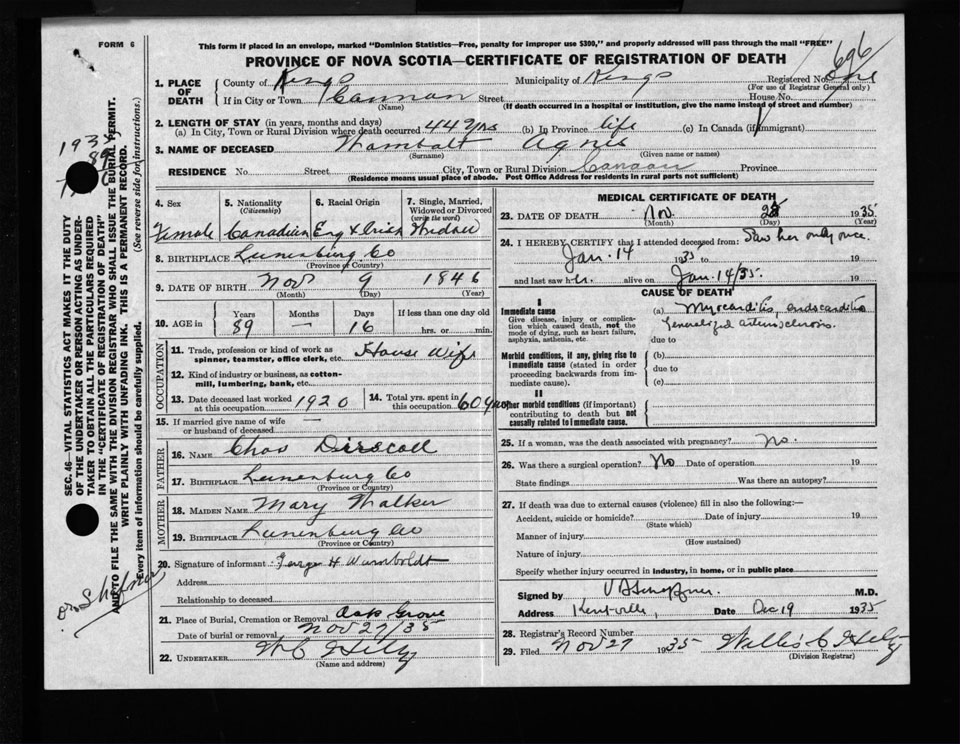 FORM 6
This form if placed in an envelope, marked "Dominion Statistics—Free, penalty for improper use $300," and properly addressed will pass through the mail "FREE"
PROVINCE OF NOVA SCOTIA—CERTIFICATE OF REGISTRATION OF DEATH
696
1. PLACE OF DEATH
County of Kings Municipality of Kings Registered No.
(For use of Registrar General only)
If in City or Town Cannan Street House No.
(Name) (If death occurred in a hospital or institution, give the name instead of street and number)
2. LENGTH OF STAY (in years, months and days)
(a) In City, Town or Rural Division where death occurred 44 yrs (b) In Province life (c) In Canada (if immigrant)
3. NAME OF DECEASED Wambolt Agnes
(Surname) (Given name or names)
RESIDENCE No. Street City, Town or Rural Division Canaan Province
(Residence means usual place of abode. Post Office Address for residents in rural parts not sufficient)
4. Sex
Female
5. Nationality
(Citizenship)
Canadien
6. Racial Origin
Eng & Irish
7. Single, Married, Widowed or Divorced
(write the word)
Widow
8. BIRTHPLACE Lunenburg Co
(Province or Country)
9. DATE OF BIRTH Nov 9 1846
(Month) (Day) (Year)
10. AGE in
Years Months Days If less than one day old
89 — 16 hrs. or min.
OCCUPATION
11. Trade, profession or kind of work as spinner, teamster, office clerk, etc. House Wife
12. Kind of industry or business, as cotton-mill, lumbering, bank, etc.
13. Date deceased last worked at this occupation 1920
14. Total yrs. spent in this occupation 60 years
15. If married give name of wife or husband of deceased —
FATHER
16. NAME Chas Driscoll
17. BIRTHPLACE Lunenburg Co
(Province or Country)
MOTHER
18. MAIDEN NAME Mary Walker
19. BIRTHPLACE Lunenburg Co
(Province or Country)
20. Signature of informant George H Wamboldt
Address
Relationship to deceased
21. Place of Burial, Cremation or Removal Oak Grove
Date of burial or removal Nov 27/35
22. UNDERTAKER W C Hiltz
(Name and address)
MEDICAL CERTIFICATE OF DEATH
23. DATE OF DEATH Nov. 25 1935
(Month) (Day) (Year)
24. I HEREBY CERTIFY that I attended deceased from: Saw her only once.
Jan. 14 1935 to 19
and last saw h er. alive on Jan. 14/35. 19
CAUSE OF DEATH
I
Immediate cause
Give disease, injury or complication which caused death, not the mode of dying, such as heart failure, asphyxia, asthenia, etc.
(a) Myocarditis, endocarditis
Generalized arteriosclerosis.
due to
Morbid conditions, if any, giving rise to immediate cause (stated in order proceeding backwards from immediate cause).
(b)
due to
(c)
II
Other morbid conditions (if important) contributing to death but not causally related to immediate cause.
25. If a woman, was the death associated with pregnancy? No.
26. Was there a surgical operation? No Date of operation 19
State findings Was there an autopsy?
27. If death was due to external causes (violence) fill in also the following:—
Accident, suicide or homicide? Date of injury 19
(State which)
Manner of injury
(How sustained)
Nature of injury
Specify whether injury occurred in industry, in home, or in public place
Signed by M.D.
Address Kentville, Date Dec 19 1935
28. Registrar's Record Number
29. Filed Nov 27 1935 Wallis C Hiltz
(Division Registrar)
SEC. 46—VITAL STATISTICS ACT MAKES IT THE DUTY
OF THE UNDERTAKER OR PERSON ACTING AS UNDERTAKER TO OBTAIN ALL THE PARTICULARS REQUIRED
IN THE "CERTIFICATE OF REGISTRATION OF DEATH"
AND TO FILE THE SAME WITH THE DIVISION REGISTRAR WHO SHALL ISSUE THE BURIAL PERMIT.
WRITE PLAINLY WITH UNFADING INK. THIS IS A PERMANENT RECORD.
Every item of information should be carefully supplied. (See reverse side for instructions.)